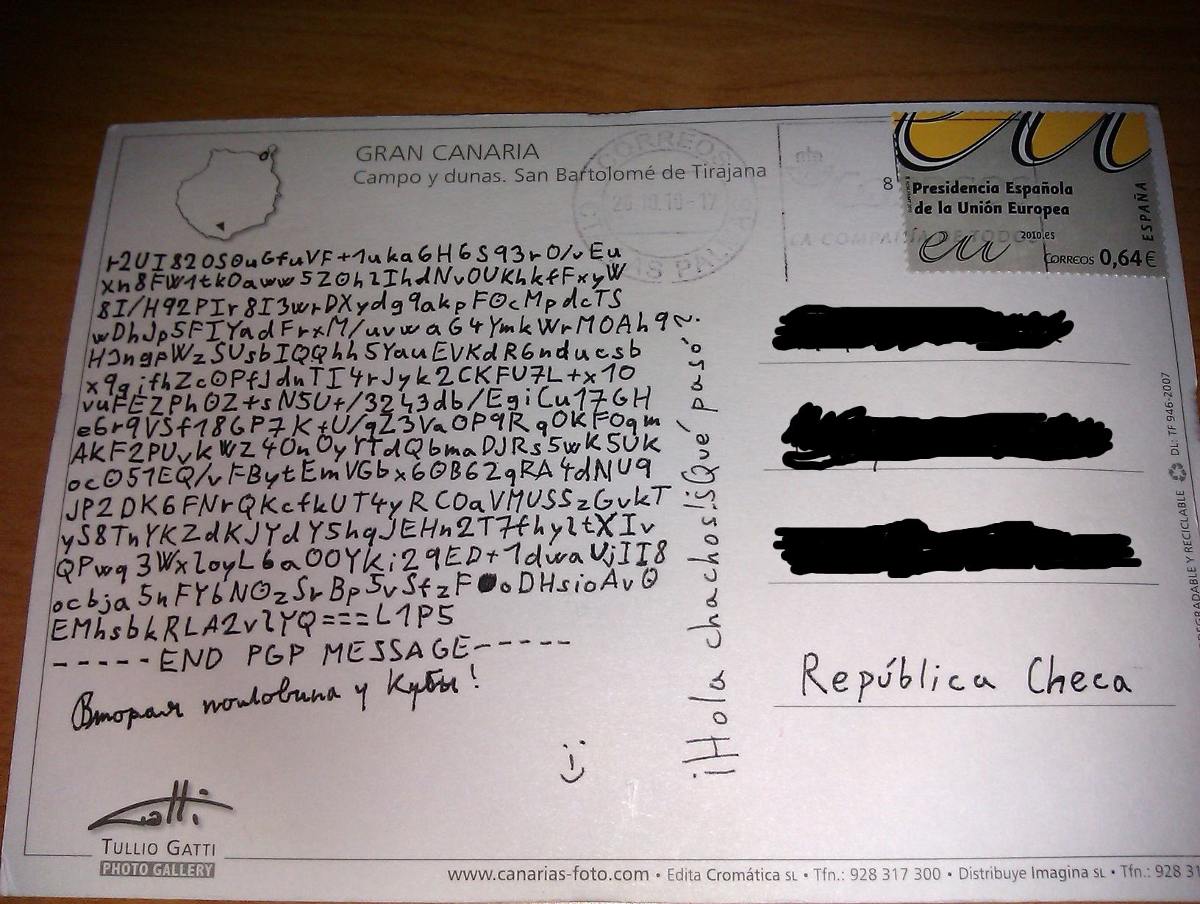 GRAN CANARIA
Campo y dunas. San Bartolomé de Tirajana
CORREOS
26.10.10-17
LAS PAL
8
Presidencia Española
de la Unión Europea
eu
2010.es
CORREOS 0,64€
ESPAÑA
LA COMPAÑIA DE TODOS
r2UI820S0uGfuVF+1uka6H6S93rO/vEu
xn8FW1tk0aww5Z0hlIhdNvOUKhkfFxyW
8I/H92PIr8I3wrDXydg9akpF0cMpdcTS
wDhJp5FIYadFrxM/uvwaG4YmkWrMOAh9
HJngpWzSUsbIQQhh5YauEVKdR6nducsb
x9gifhZc0PfJdnTI4rJyk2CKFU7L+x10
vuFEZPh0Z+sN5U+/3243db/EgiCu17GH
e6r9VSf18GP7K+U/gZ3Va0P9RqOKFOqm
AKF2PUvkWZ4OnOyYTdQbmaDJRs5wK5UK
oc051EQ/vFBytEmVGbx60B62qRA4dNU9
JP2DK6FNrQKcfkUT4yRC0aVMUSSzGvkT
yS8TnYKZdKJYdY5hqJEHn2T7fhyltXIv
QPwq3WxloyL6aOOYKi29ED+1dwaUjII8
ocbja5nFYbN0zSrBp5vSfzF oDHsioAv0
EMhsbkRLA2vlYQ===L1P5
-----END PGP MESSAGE-----
Вторая половина у Кубы!
¡Hola chachos! ¿Qué pasó?
República Checa
TULLIO GATTI
PHOTO GALLERY
www.canarias-foto.com • Edita Cromática SL • Tfn.: 928 317 300 • Distribuye Imagina SL • Tfn.: 928 31
EGRADABLE Y RECICLABLE DL: TF 946-2007